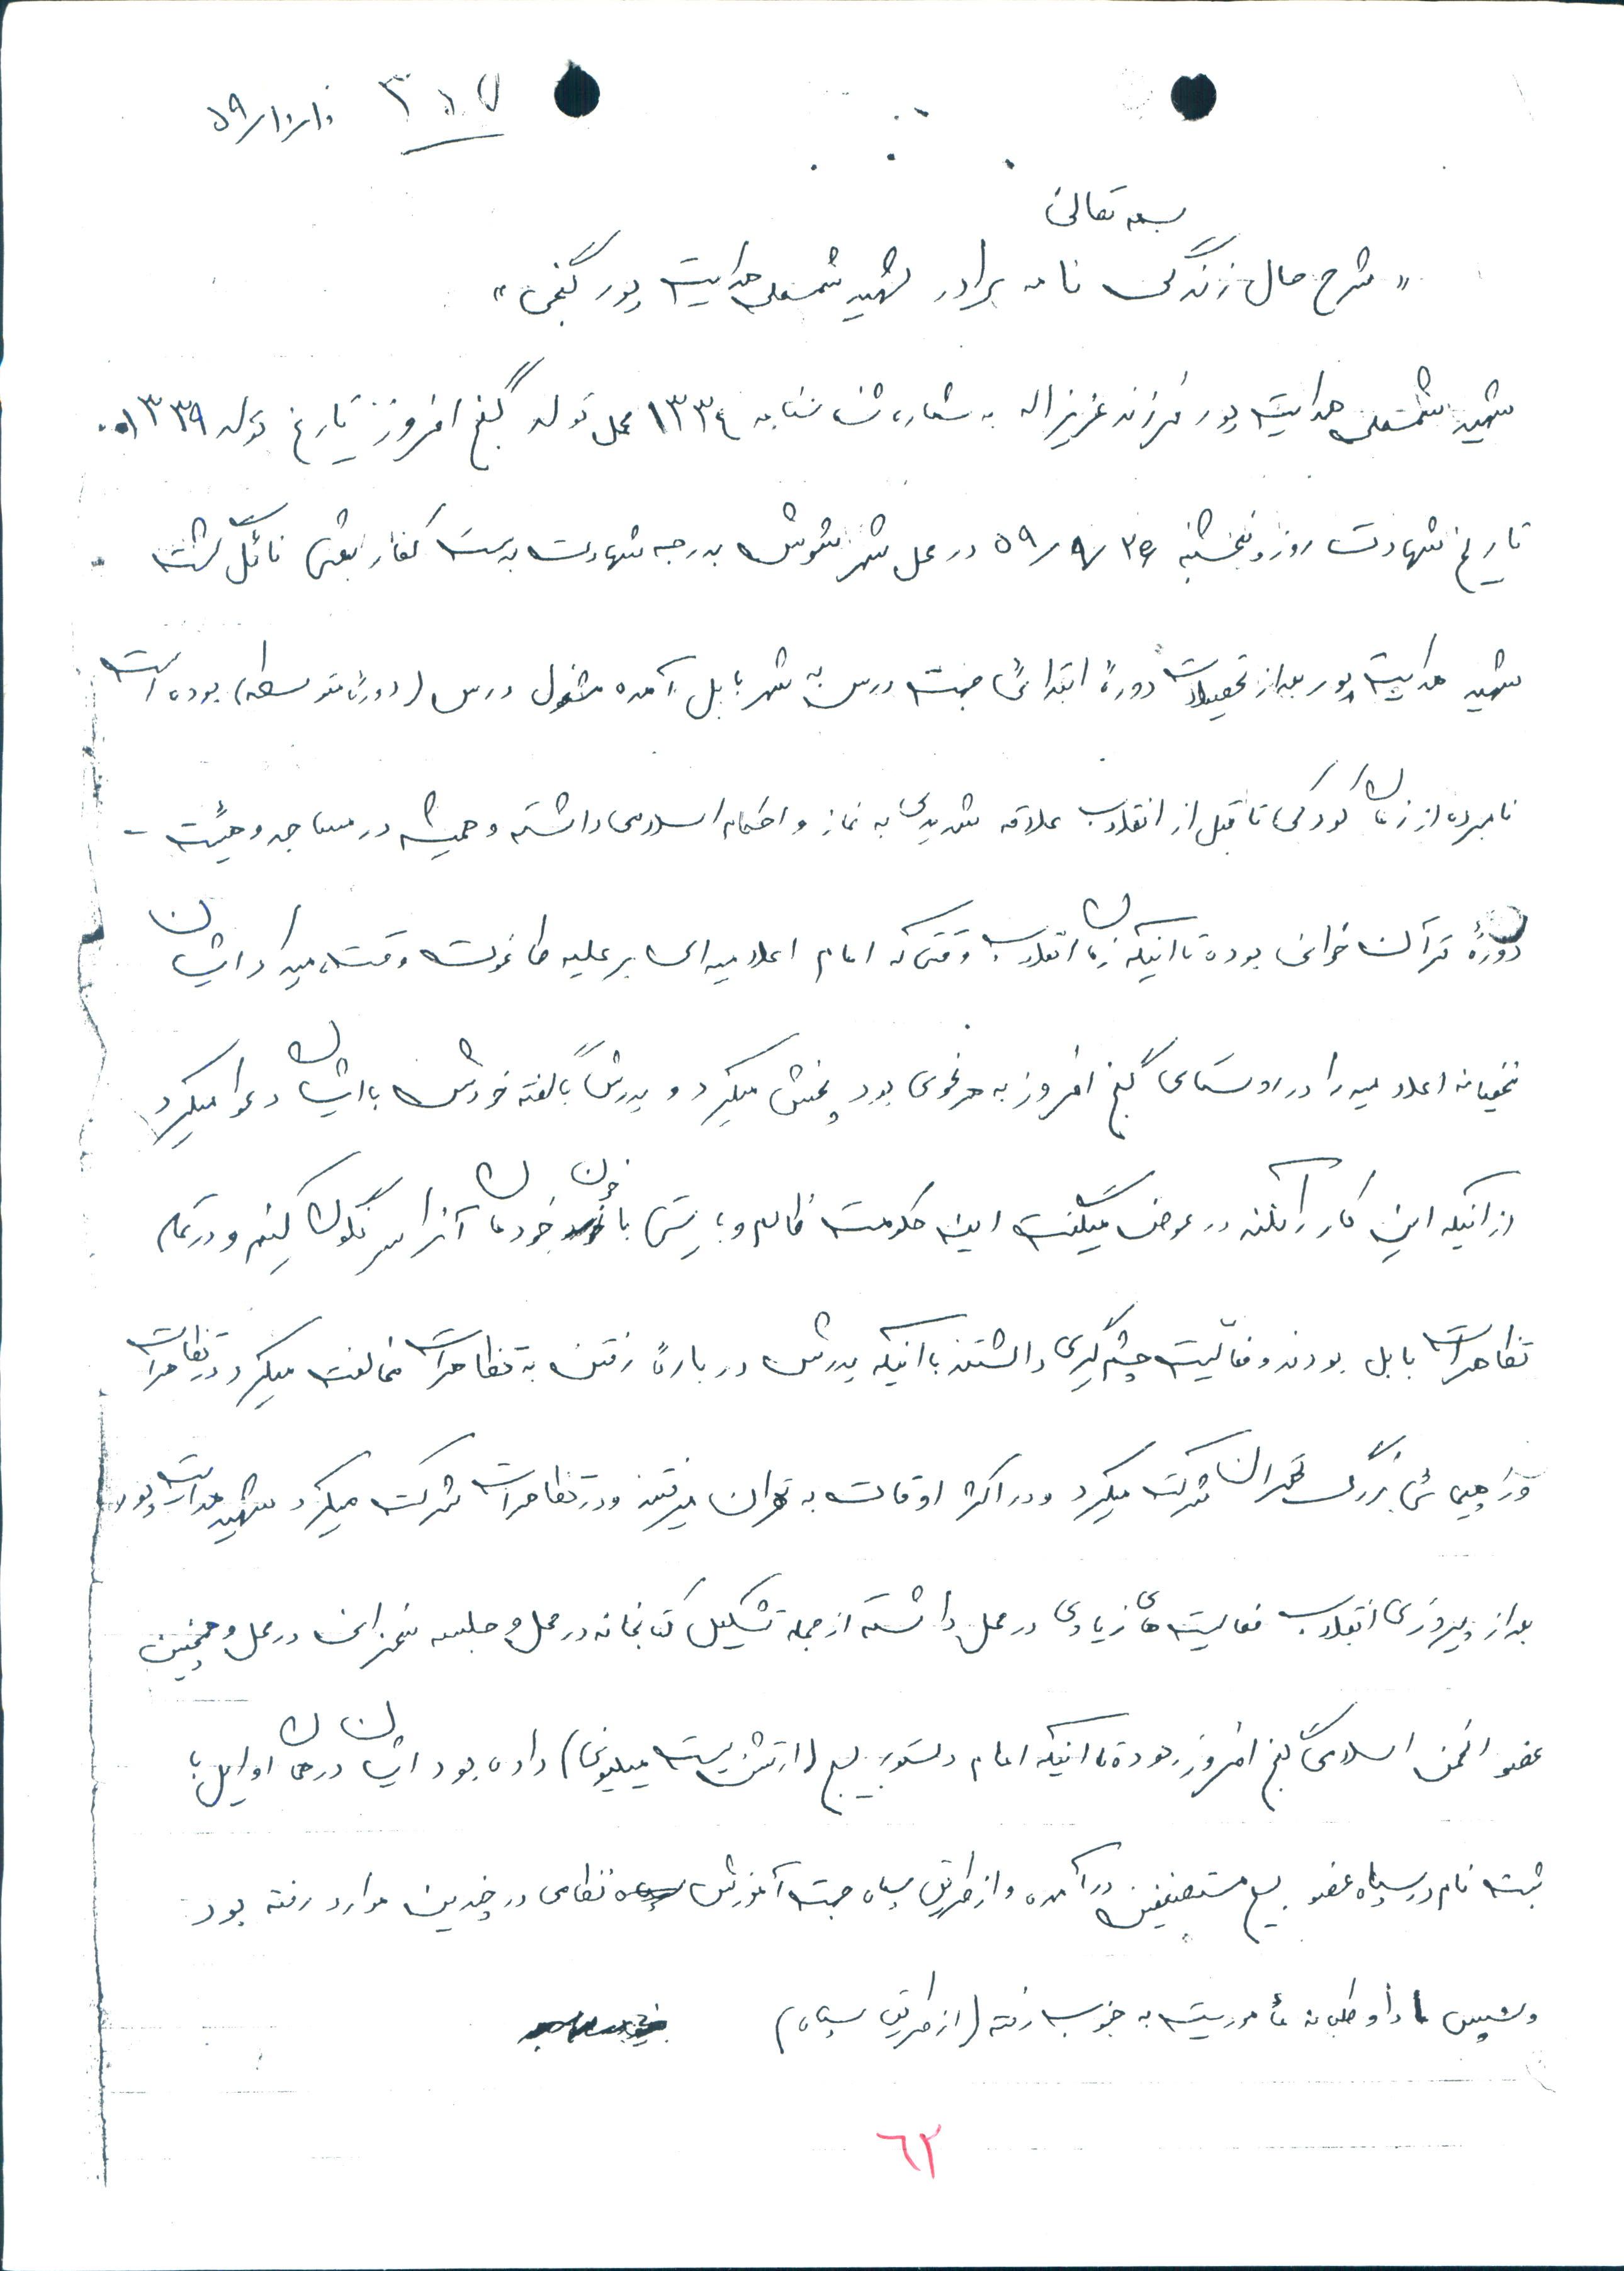 ۳۱۷
بسمه تعالی
« شرح حال زندگی نامه برادر شهید شمسعلی هدایت پور گنجی »
شهید شمسعلی هدایت پور فرزند عزیزاله به شماره شناسنامه ۱۳۳۴ محل تولد گنج افروز تاریخ تولد ۱۳۳۹
تاریخ شهادت روز پنجشنبه ۵۹/۹/۲۶ در محل شهر شوش بدرجه شهادت بدست کفار بعثی نائل گشت
شهید هدایت پور بعد از تحصیلات دورهٔ ابتدائی جهت درس به شهر بابل آمده مشغول درس (دورهٔ متوسطه) بوده است
نامبرده از زمان کودکی تا قبل از انقلاب علاقه شدیدی به نماز و احکام اسلامی داشته و همیشه در مساجد و هیئت -
دورهٔ قرآن خوانی بوده تا اینکه زمان انقلاب وقتی که امام اعلامیه ای بر علیه طاغوت وقت میداد ایشان
مخفیانه اعلامیه را در روستای گنج افروز به هر نحوی بود پخش میکرد و پدرش بگفته خودش با ایشان دعوا میکرد
از اینکه این کار را نکند در عوض میگفت این حکومت ظالم و بایستی با خون خودمان آنرا سرنگون کنیم و در تمام
تظاهرات بابل بودند و فعالیت چشم گیری داشتند با اینکه پدرش در بارهٔ رفتن به تظاهرات مخالفت میکرد در تظاهرات
و راهپیمائی بزرگ تهران شرکت میکرد و در اکثر اوقات به تهران میرفتند و در تظاهرات شرکت میکرد شهید هدایت پور
بعد از پیروزی انقلاب فعالیت های زیادی در محل داشته از جمله تشکیل کتابخانه در محل و جلسه سخنرانی در محل و همچنین
عضو انجمن اسلامی گنج افروز بوده تا اینکه امام دستور بسیج (ارتش بیست میلیونی) داده بود ایشان در همان اوایل با
ثبت نام در سپاه عضو بسیج مستضعفین درآمده و از طریق سپاه جهت آموزش نظامی در چندین موارد رفته بود
و سپس داوطلبانه مأموریت به جنوب رفته (از طریق سپاه)
۶۲